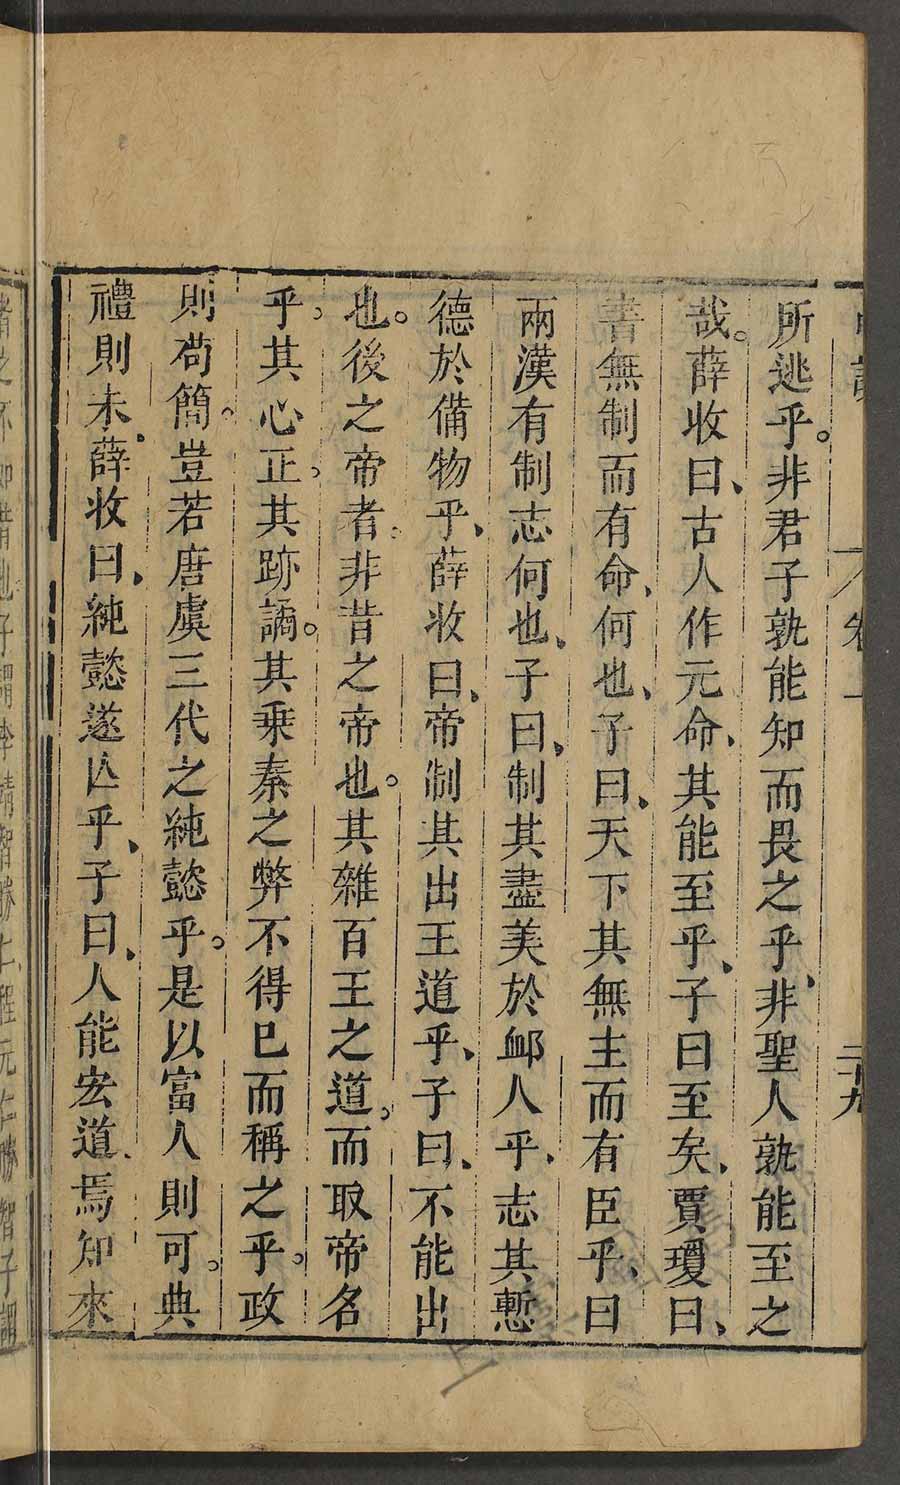 所逃乎。非君子孰能知而畏之乎、非聖人孰能至之
哉。薛收曰、古人作元命、其能至乎、子曰至矣、賈瓊曰、
書無制而有命、何也、子曰、天下其無主而有臣乎、曰
兩漢有制志何也、子曰、制其盡美於䘏人乎、志其慙
德於備物乎、薛收曰、帝制其出王道乎、子曰、不能出
也。後之帝者。非昔之帝也。其雜百王之道。而取帝名
乎。其心正。其跡譎。其乗秦之弊不得巳而稱之乎。政
則苟簡。豈若唐虞三代之純懿乎。是以富人則可。典
禮則未、薛收曰、純懿遂亾乎、子曰、人能宏道、焉知來
卷一
二十九